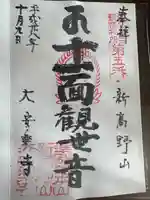 奉拝
第五番
新高野山
十一面観世音
大安楽寺
平成廿八年
十月九日